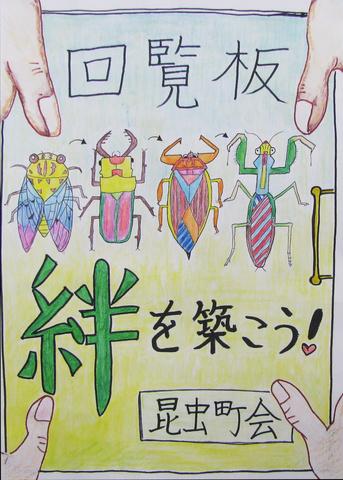 回覧板
絆を築こう!
昆虫町会